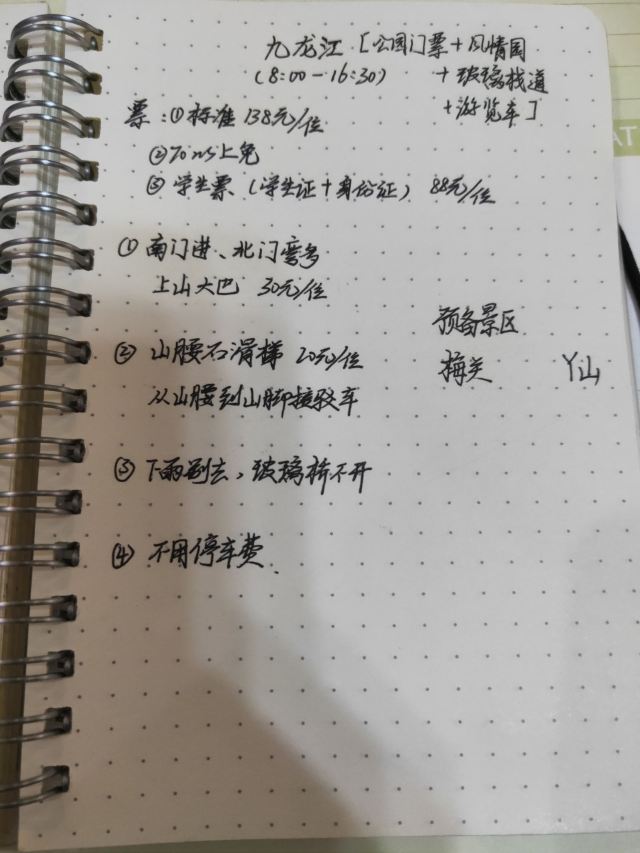 九龙江 [公园门票+风情园
(8:00-16:30) +玻璃栈道
+游览车]
票:①标准 138元/位
②70以上免
③学生票(学生证+身份证) 88元/位
①南门进、北门弯多
上山大巴 30元/位
预备景区
②山腰石滑梯 20元/位
梅关 丫山
从山腰到山脚接驳车
③下雨别去,玻璃桥不开
④不用停车费
TA